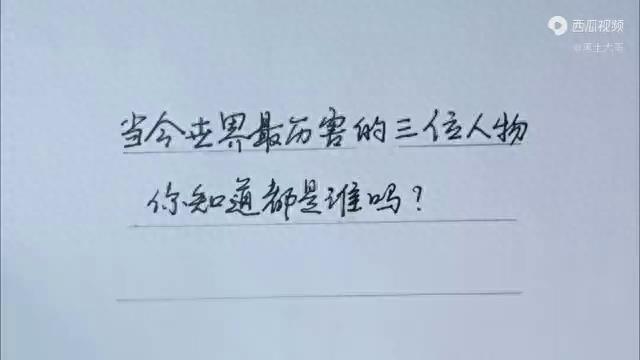 西瓜视频
当今世界最历害的三位人物
你知道都是谁吗？